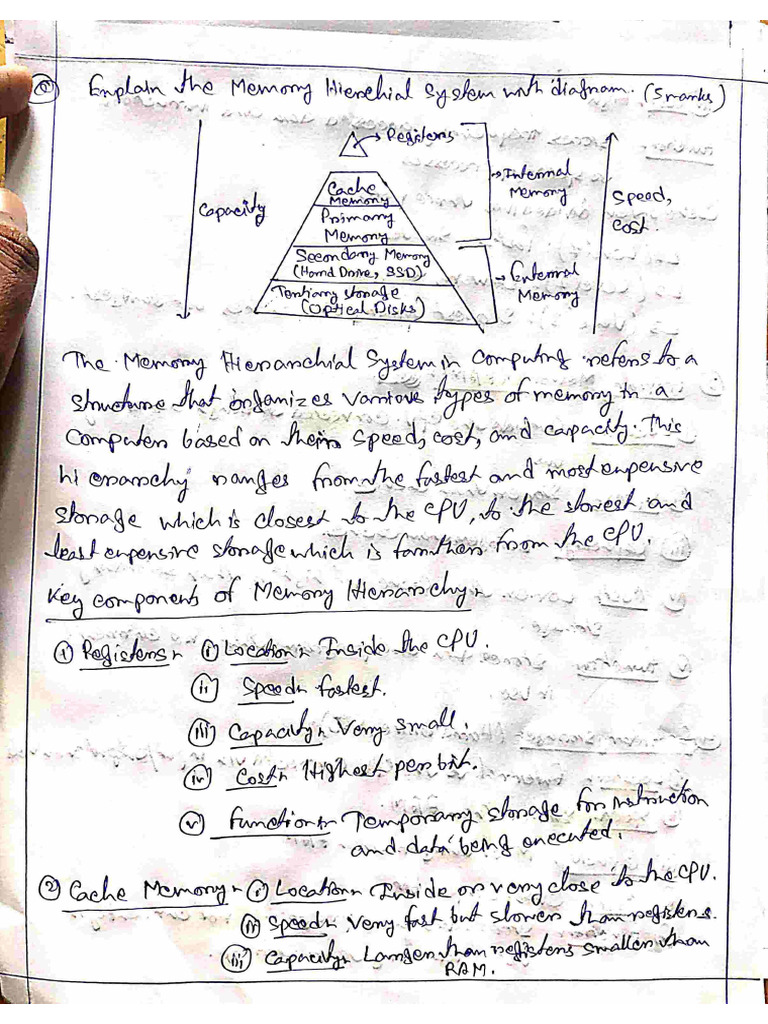 Explain the Memory Hierchial System with diagram. (5 marks)
Registers
Capacity
Cache
Memory
Primary
Memory
Secondary Memory
(Hard Drive, SSD)
Tertiary storage
(Optical Disks)
Internal
Memory
External
Memory
Speed,
Cost.
The Memory Hierarchial System in Computing refers to a
structure that organizes various types of memory in a
Computer based on their speed, cost, and capacity. This
hierarchy ranges from the fastest and most expensive
storage which is closest to the CPU, to the slowest and
least expensive storage which is farther from the CPU.
Key components of Memory Hierarchy:-
① Registers:- ⓘ Location:- Inside the CPU.
ⓘⓘ Speed:- fastest.
ⓘⓘⓘ Capacity:- Very small.
ⓘⓥ Cost:- Highest per bit.
ⓥ Function:- Temporary storage for instruction
and data being executed.
② Cache Memory:- ⓘ Location:- Inside or very close to the CPU.
ⓘⓘ Speed:- Very fast but slower than registers.
ⓘⓘⓘ Capacity:- Larger than registers smaller than
RAM.